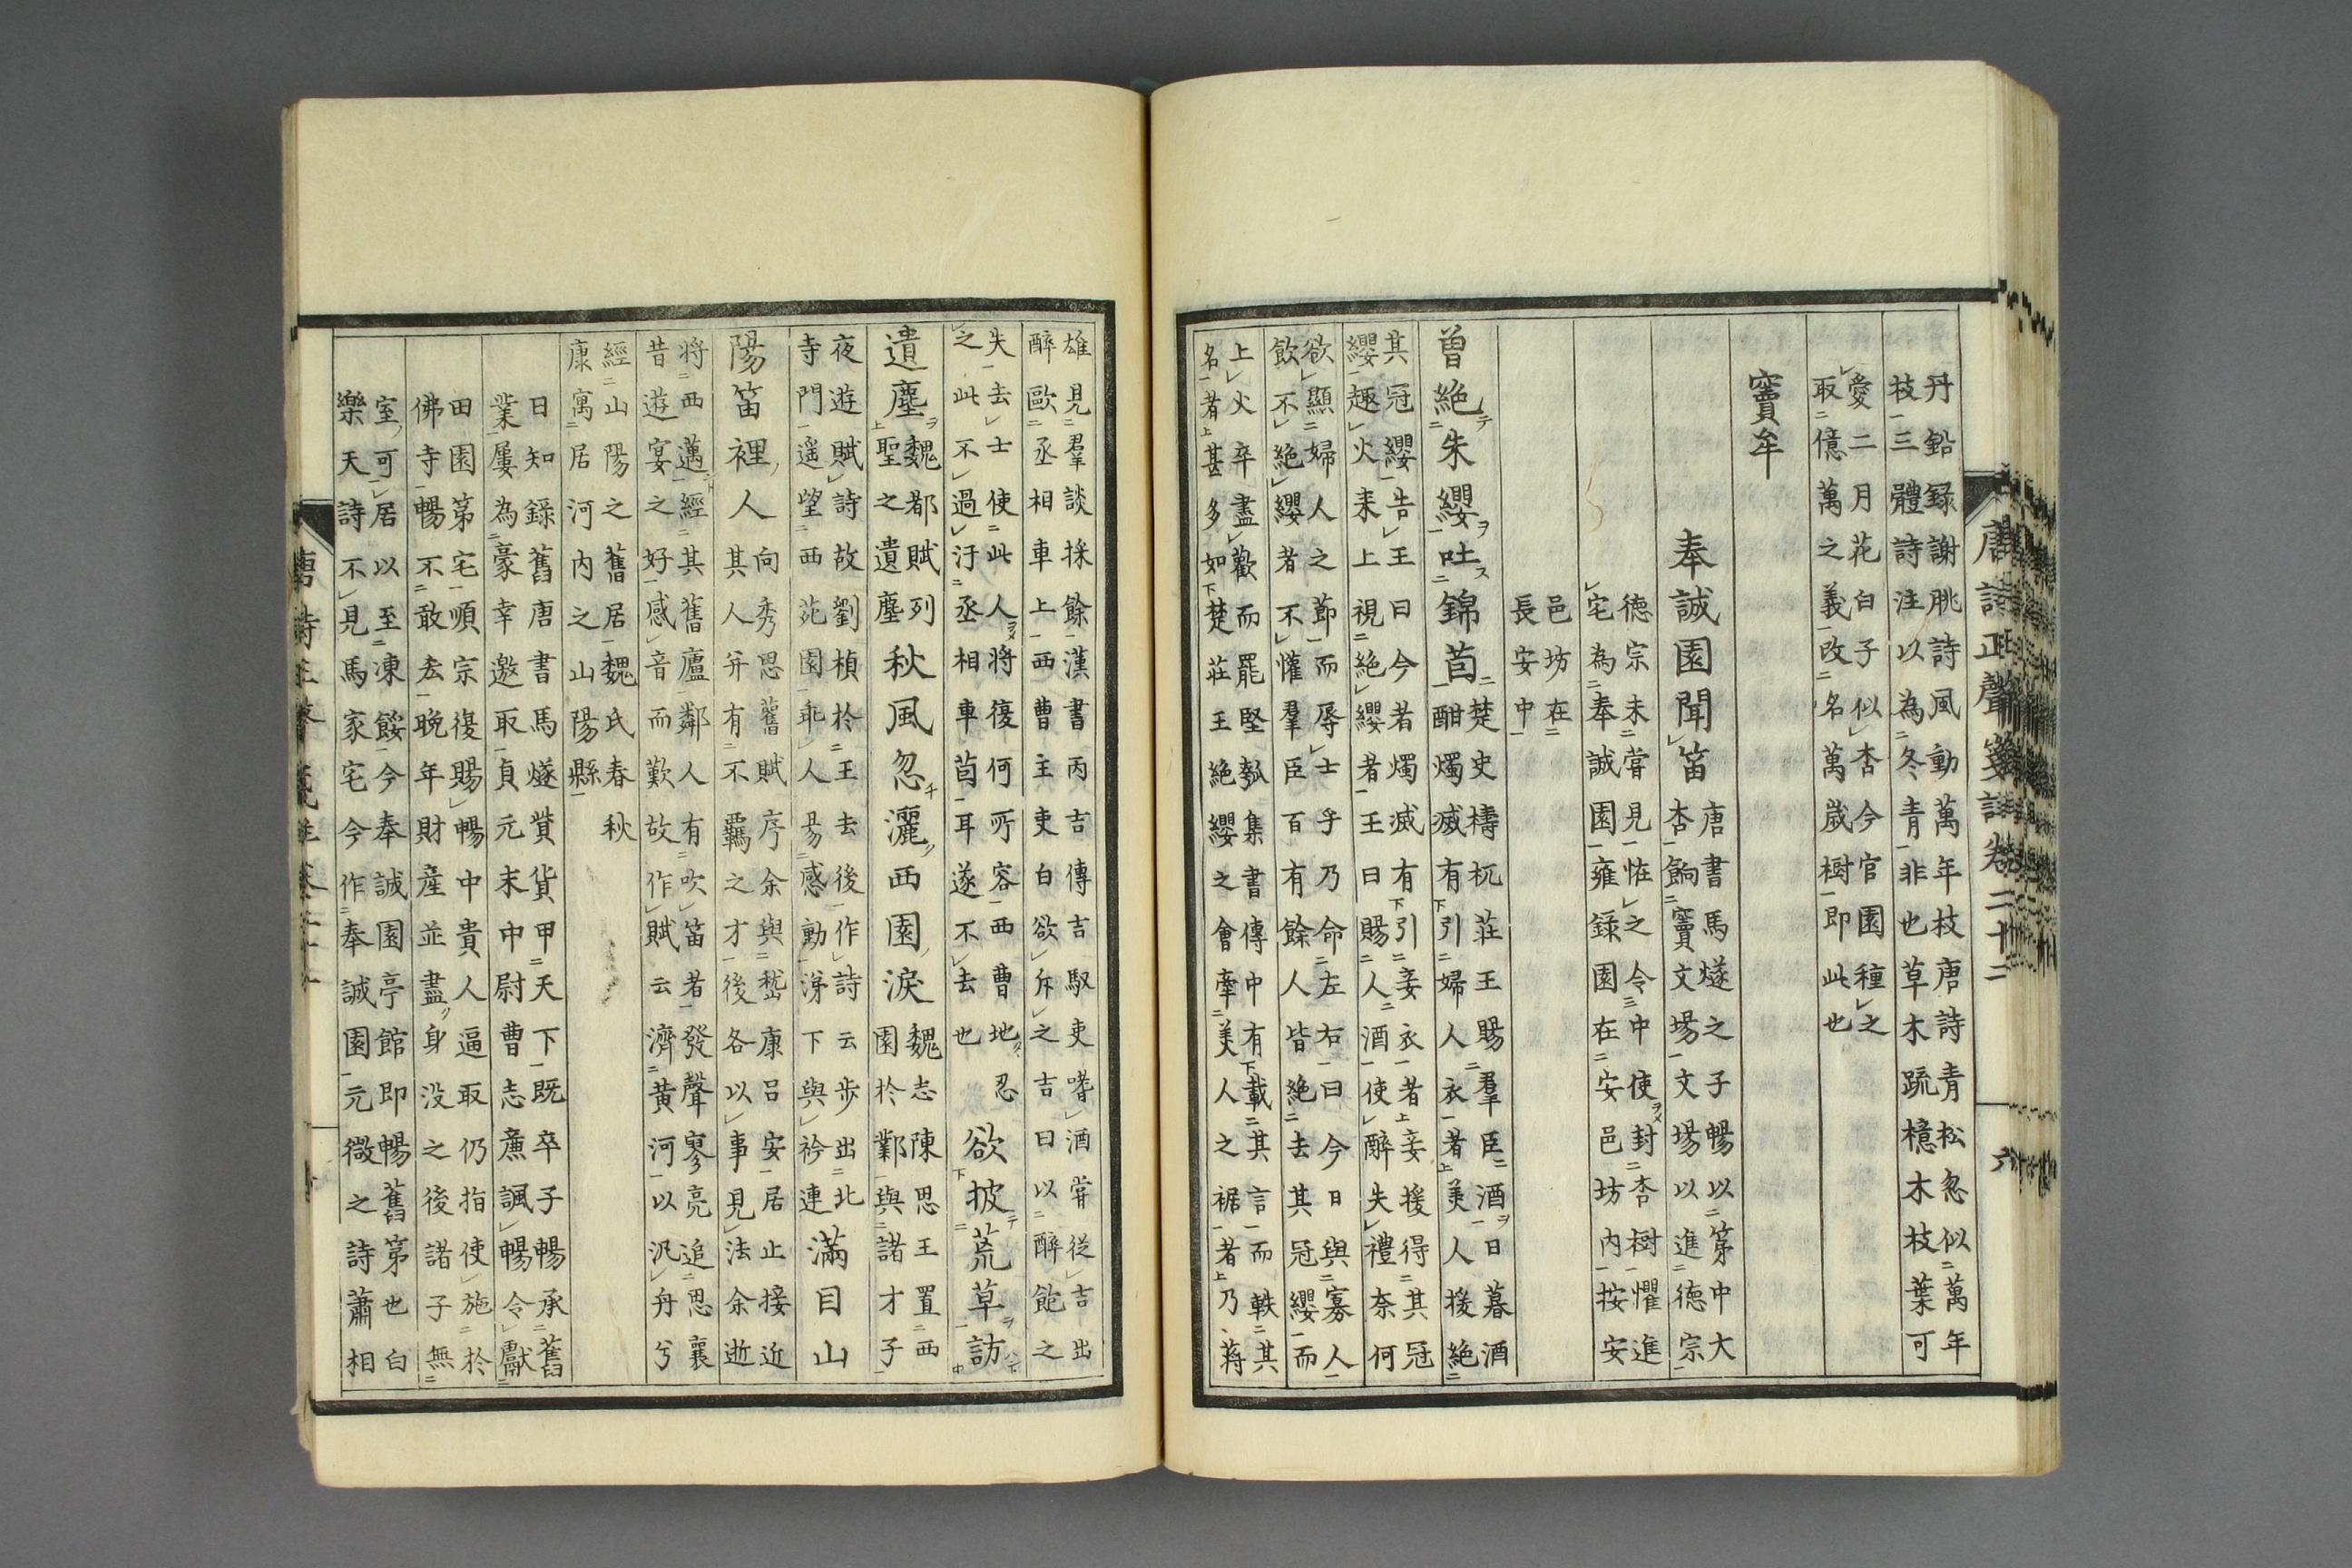 唐詩正聲箋註卷二十二　六
丹鉛録謝朓詩風動萬年枝唐詩青松忽似萬年
枝三體詩注以為冬青非也草木䟽檍木枝葉可
愛二月花白子似杏今官園種之
取億萬之義改名萬歲樹即此也
竇牟
奉誠園聞笛
唐書馬燧之子暢以第中大
杏餉竇文場文場以進德宗
德宗未甞見恠之令中使封杏樹懼進
宅為奉誠園雍録園在安邑坊内按安
邑坊在
長安中
曽絶朱纓吐錦茵
楚史檮杌莊王賜羣臣酒日暮酒
酣燭滅有引婦人衣者美人援絶
其冠纓告王曰今者燭滅有引妾衣者妾援得其冠
纓趣火来上視絶纓者王曰賜人酒使醉失禮奈何
欲顯婦人之節而辱士乎乃命左右曰今日與寡人
飲不絶纓者不懽羣臣百有餘人皆絶去其冠纓而
上火卒盡歡而罷堅瓠集書傳中有載其言而軼其
名者甚多如楚莊王絶纓之會牽美人之裾者乃蔣
雄見羣談採餘漢書丙吉傳吉馭吏嗜酒甞從吉出
醉歐丞相車上西曹主吏白欲斥之吉曰以醉飽之
失去士使此人将復何所容西曹地忍
之此不過汙丞相車茵耳遂不去也
欲披荒草訪
遺塵
魏都賦列
聖之遺塵
秋風忽灑西園淚
魏志陳思王置西
園於鄴與諸才子
夜遊賦詩故劉楨於王去後作詩云歩出北
寺門遥望西苑園乖人易感動涕下與衿連
滿目山
陽笛裡人
向秀思舊賦序余與嵇康吕安居止接近
其人并有不羈之才後各以事見法余逝
将西邁經其舊廬鄰人有吹笛者發聲寥亮追思曩
昔遊宴之好感音而歎故作賦云濟黄河以汎舟兮
經山陽之舊居魏氏春秋
康寓居河内之山陽縣
日知録舊唐書馬燧貲貨甲天下既卒子暢承舊
業屢為豪幸邀取貞元末中尉曹志亷諷暢令獻
田園第宅順宗復賜暢中貴人逼取仍指使施於
佛寺暢不敢晚年財産並盡身没之後諸子無
室可居以至凍餒今奉誠園亭館即暢舊第也白
樂天詩不見馬家宅今作奉誠園元微之詩蕭相